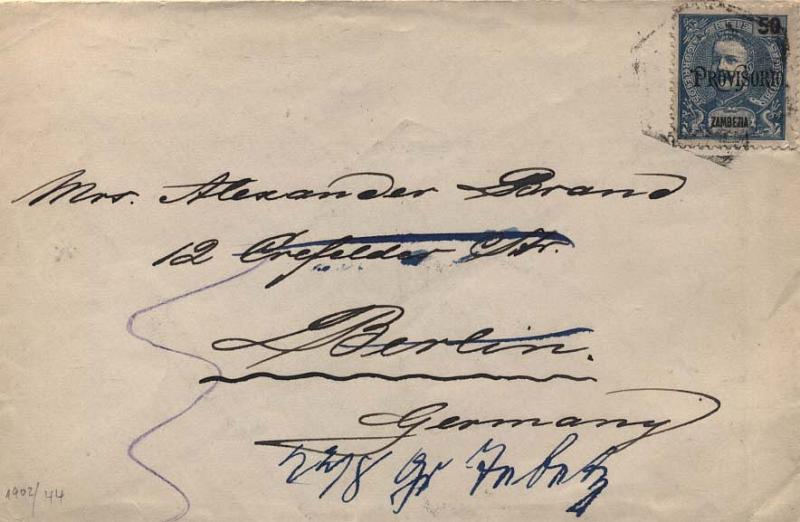 50
PROVISORIO
ZAMBEZIA
Mrs. Alexander Brand
12 Crefelder Str.
Berlin.
Germany
1902/44